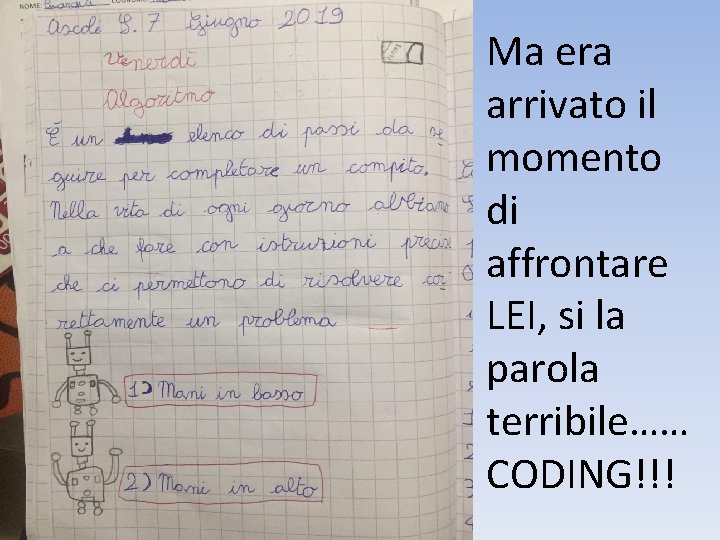 NOME:
Ascoli S. 7 Giugno 2019
Venerdì
Algoritmo
È un elenco di passi da se
guire per completare un compito.
Nella vita di ogni giorno abbiamo
a che fare con istruzioni precise
che ci permettono di risolvere cor
rettamente un problema
1) Mani in basso
2) Mani in alto
Ma era
arrivato il
momento
di
affrontare
LEI, si la
parola
terribile……
CODING!!!